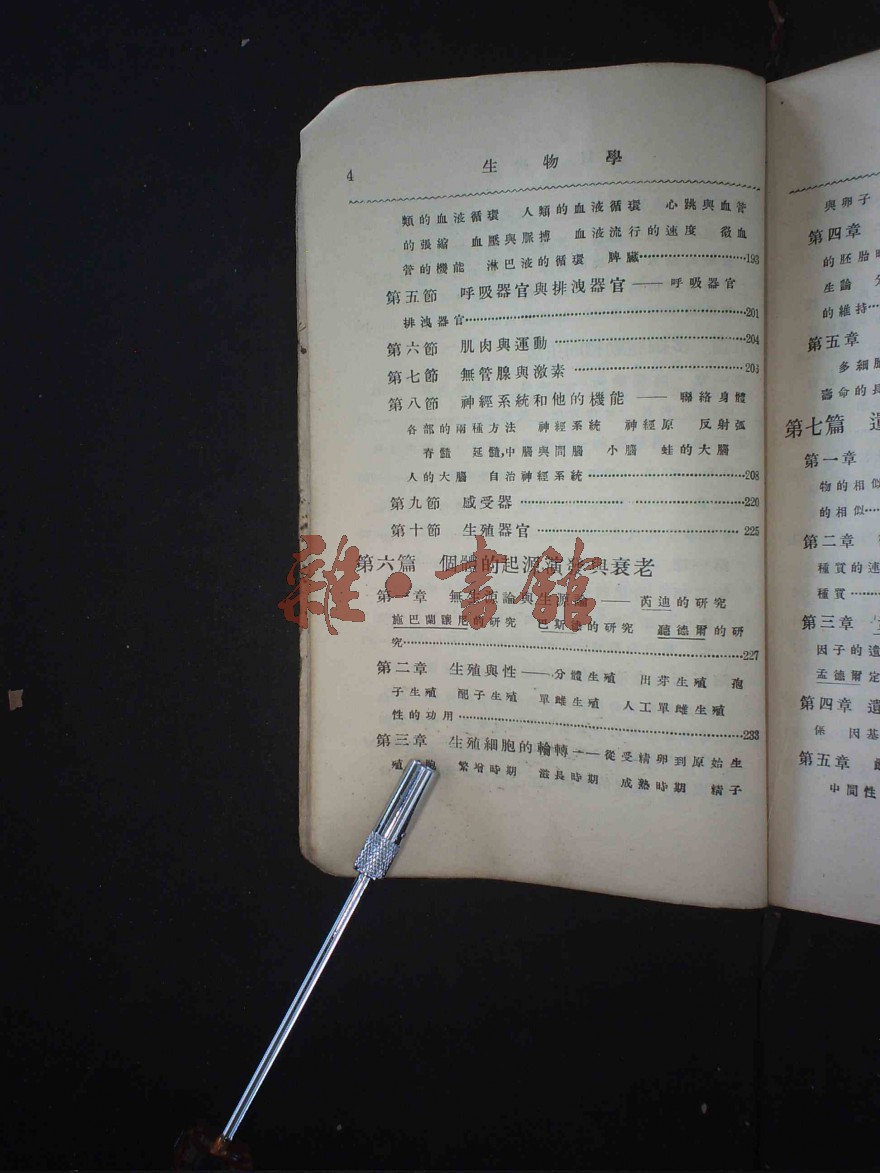 4 生物學
類的血液循環 人類的血液循環 心跳與血管
的張縮 血壓與脈搏 血液流行的速度 微血
管的機能 淋巴液的循環 脾臟 193
第五節 呼吸器官與排洩器官——呼吸器官
排洩器官 201
第六節 肌肉與運動 204
第七節 無管腺與激素
第八節 神經系統和他的機能——聯絡身體
各部的兩種方法 神經系統 神經原 反射弧
脊髓 延髓,中腦與間腦 小腦 蛙的大腦
人的大腦 自治神經系統 208
第九節 感受器 220
第十節 生殖器官 225
第六篇 個體的起源演變與衰老
第一章 無生源論與生源論——芮迪的研究
施巴蘭讓尼的研究 巴斯德的研究 聽德爾的研
究 227
第二章 生殖與性——分體生殖 出芽生殖 孢
子生殖 配子生殖 單雌生殖 人工單雌生殖
性的功用 233
第三章 生殖細胞的輪轉——從受精卵到原始生
殖 胞 繁增時期 滋長時期 成熟時期 精子
與卵子
第四章
的胚胎
生論
的維持
第五章
多細
壽命的長
第七篇
第一章
物的相似
的相似
第二章
種質的速
種質
第三章
因子的遺
孟德爾定
第四章 遺
係 因基
第五章
中間性
雜·書館